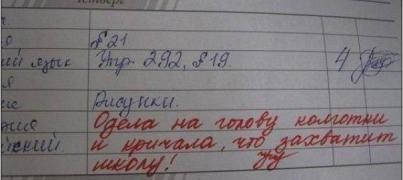 четверг
§ 21
ий язык Упр. 292, § 19. 4
Рисунки.
Одела на голову колготки
и кричала, что захватит
школу!